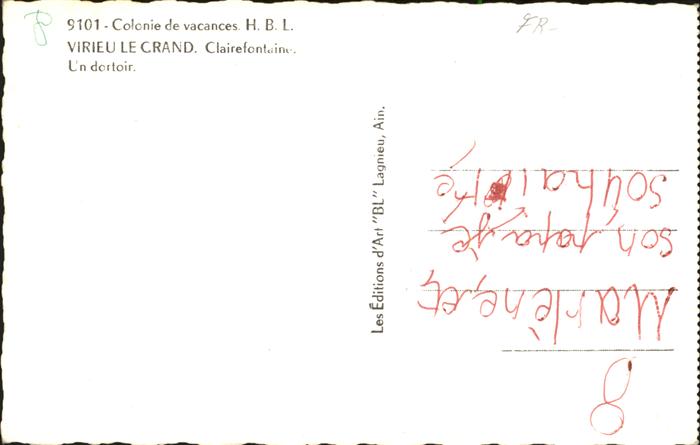 9101 - Colonie de vacances. H. B. L.
VIRIEU LE GRAND. Clairefontaine.
Un dortoir.
FR-
Les Éditions d'Art "BL" Lagnieu, Ain.
8
Marlène, et
son papa, je
souhaite